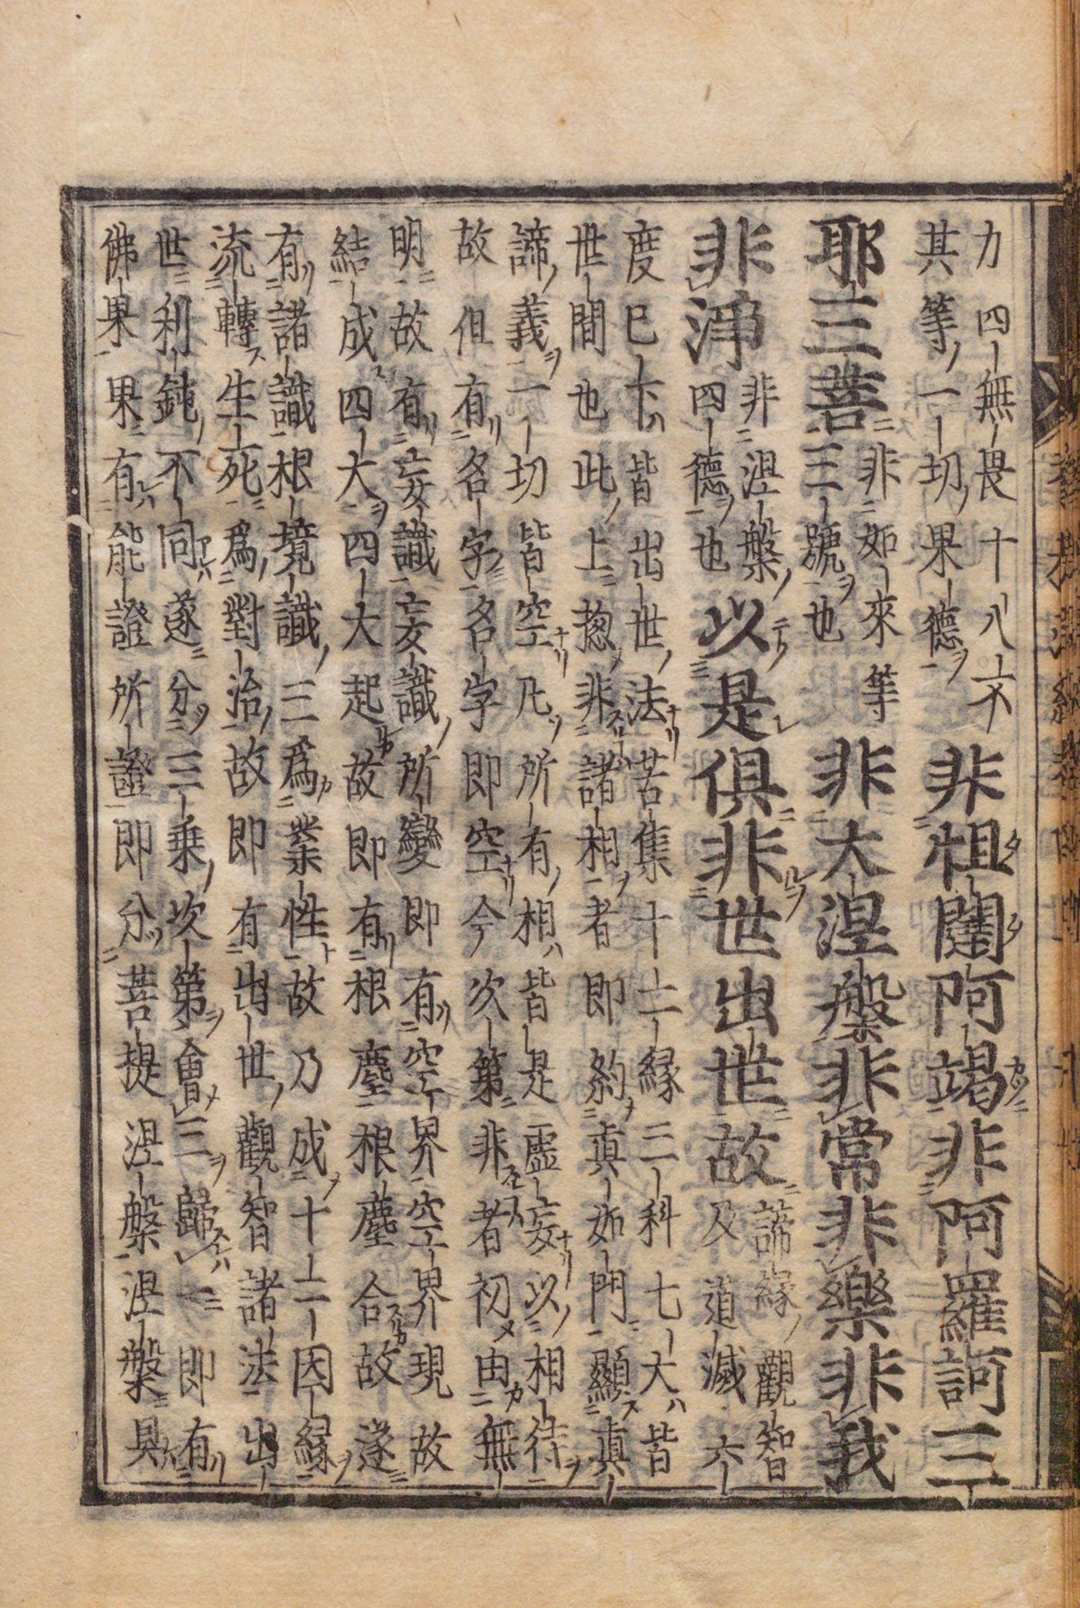 力四無畏十八不
其等一切果德
非怛闥阿竭非阿羅訶三
耶三菩
非如來等
三號也
非大涅槃非常非樂非我
非淨
非涅槃
四德也
以是俱非世出世故
諦緣觀智
及道滅六
度巳下皆出世法苦集十二緣三科七大皆
世間也此上揔非諸相者即約真如門顯真
諦義一切皆空凡所有相皆是虛妄以相待
故但有名字名字即空今次第非者初由無
明故有妄識妄識所變即有空界空界現故
結成四大四大起故即有根塵根塵合故遂
有諸識根境識三為業性故乃成十二因緣
流轉生死為對治故即有出世觀智諸法出
世利鈍不同遂分三乘坎第會三歸一即有
佛果果有能證所證即分菩提涅槃涅槃具